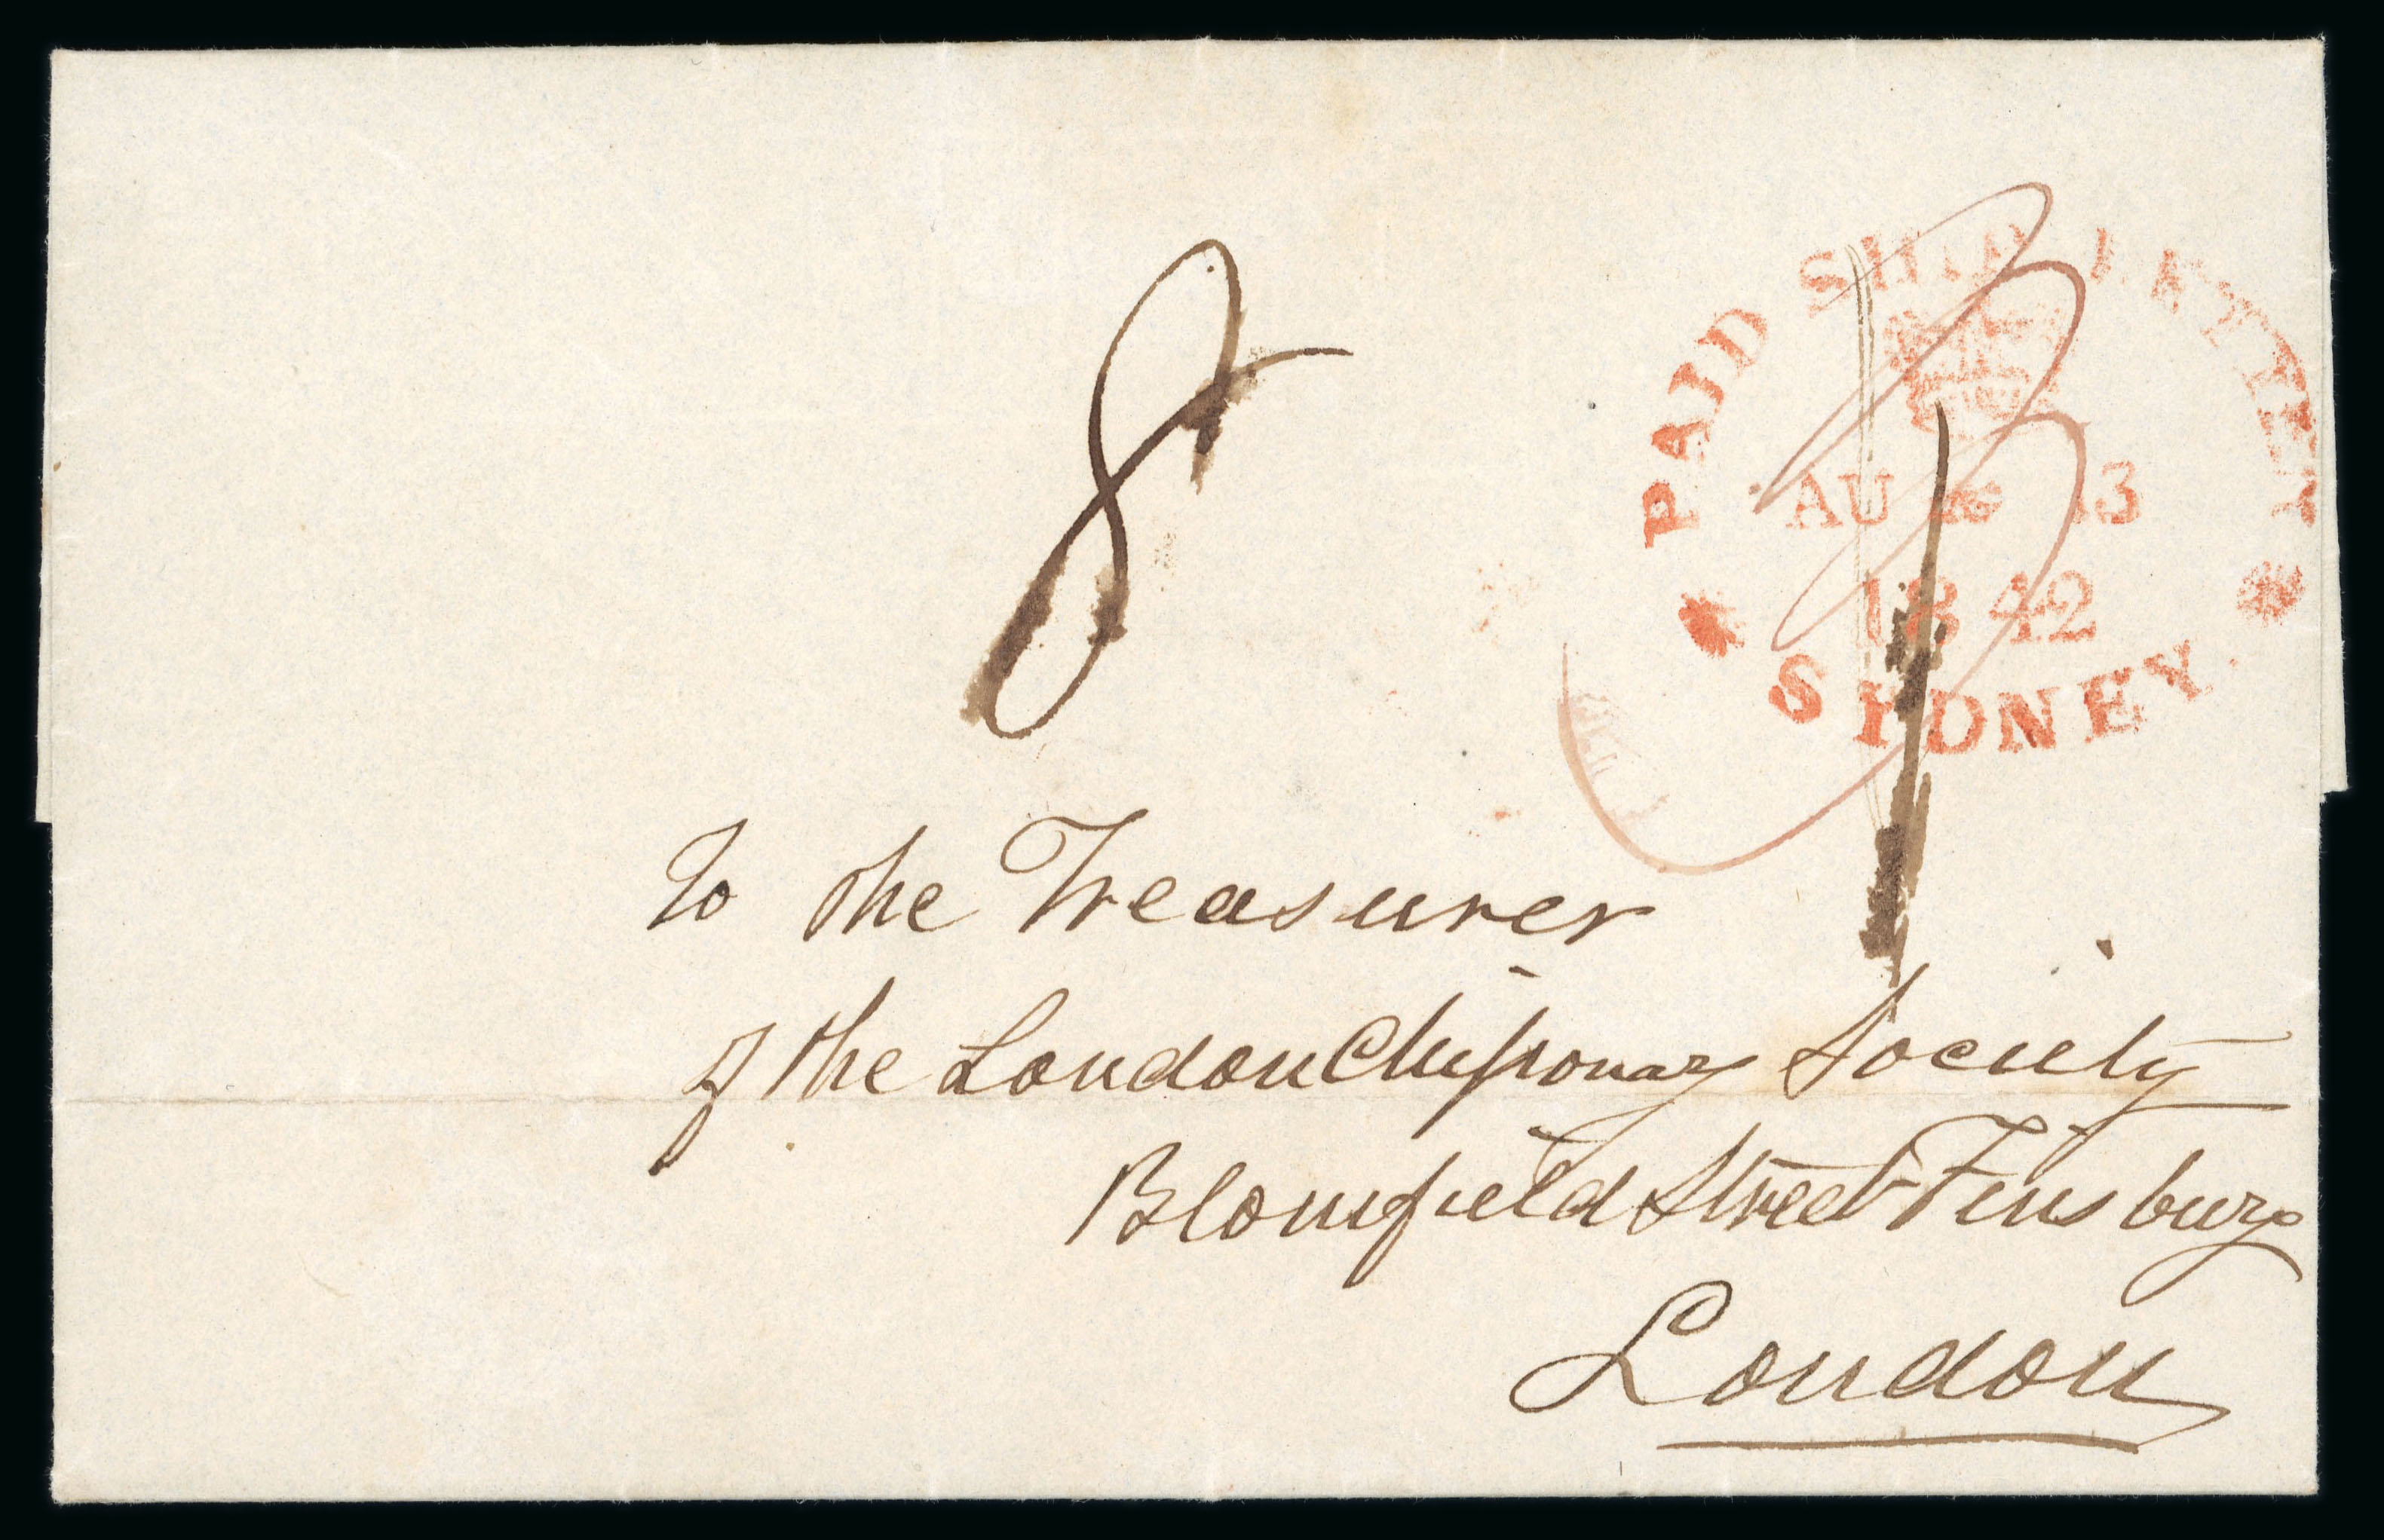 8
PAID SHIP LETTER
AU 13
1842
SYDNEY
To the Treasurer
of the London Missionary Society
Blomfield Street Finsbury
London